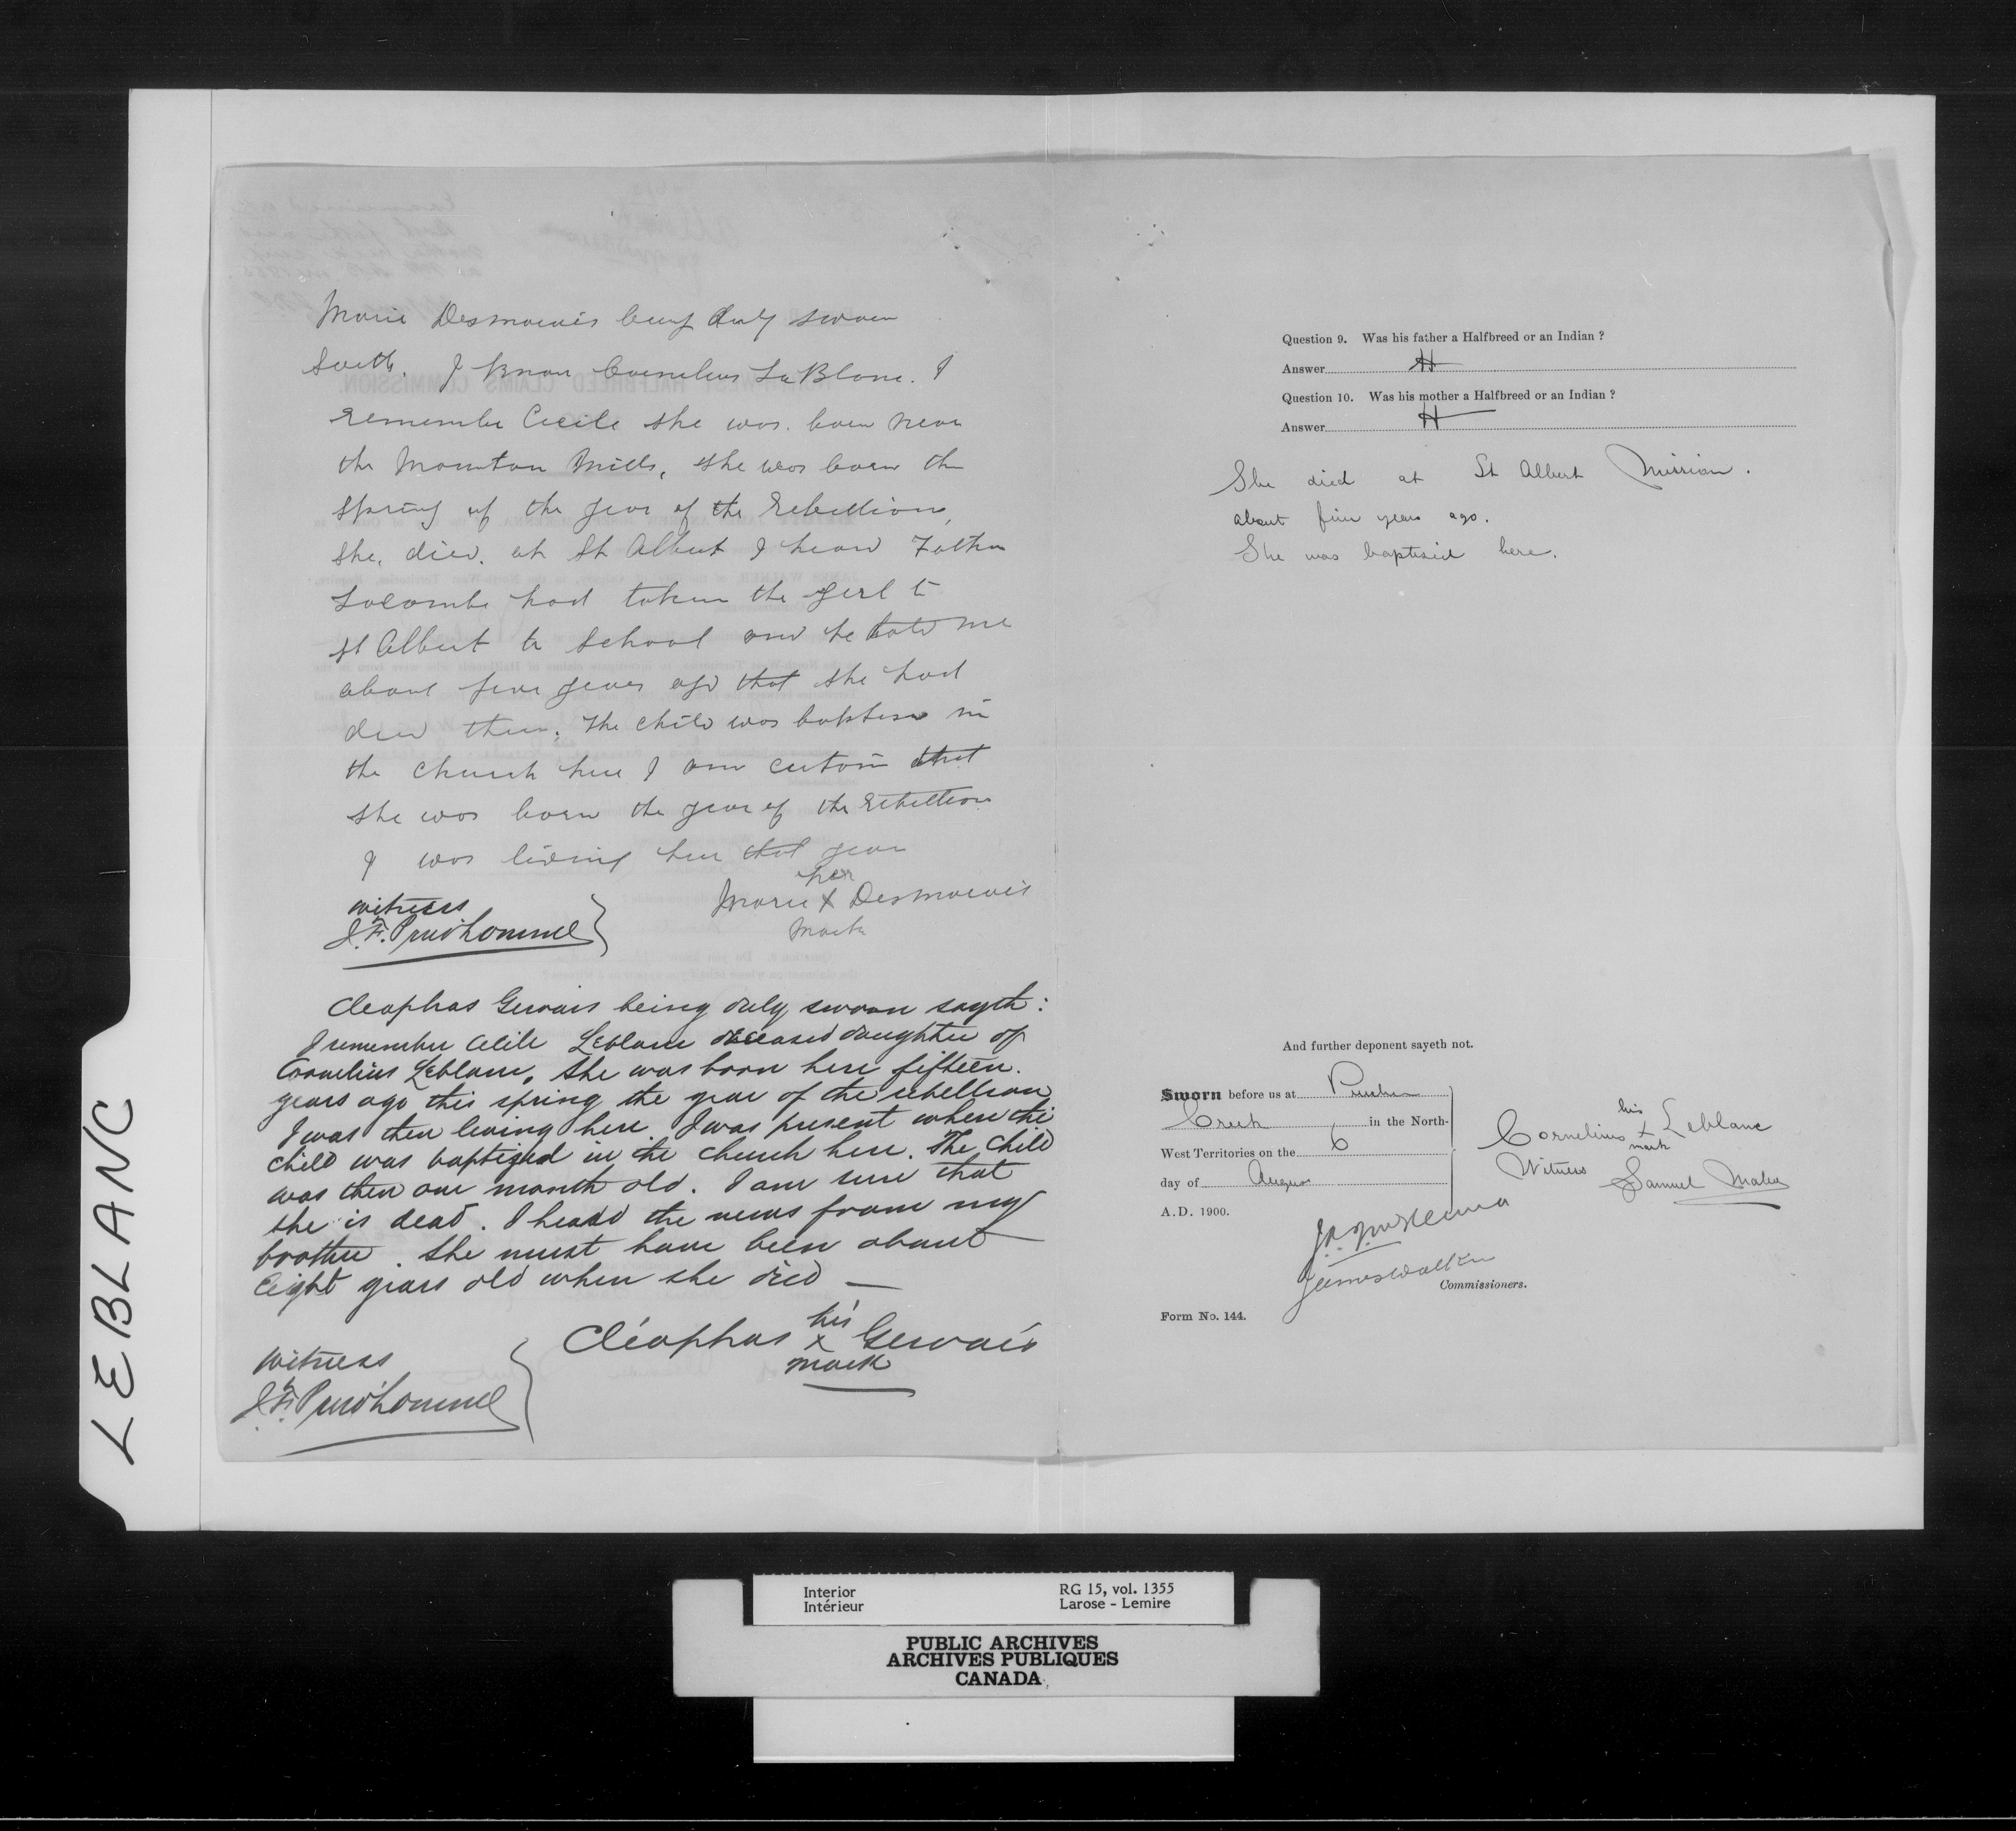 LEBLANC
Marie Desmarais being duly sworn
Saith. I know Cornelius LeBlanc. I
remember Cecile she was born near
the Mountain Mills, she was born the
spring of the year of the Rebellion,
she died at St Albert I heard Father
Lacombe had taken the girl to
St Albert to School and he told me
about five years ago that she had
died there. The child was baptised in
the church here I am certain that
she was born the year of the rebellion
I was living here that year
her
Marie X Desmarais
mark
witness
J.F. Prud'homme
Cleophas Gervais being duly sworn sayth:
I remember Cecile Leblanc deceased daughter of
Cornelius Leblanc. She was born here fifteen
years ago this spring the year of the rebellion
I was then living here. I was present when the
child was baptized in the church here. The child
was then one month old. I am sure that
she is dead. I heard the news from my
brother. She must have been about
eight years old when she died —
his
Cléophas x Gervais
mark
witness
J.F. Prud'homme
Question 9. Was his father a Halfbreed or an Indian ?
Answer H
Question 10. Was his mother a Halfbreed or an Indian ?
Answer H
She died at St Albert Mission.
about five years ago.
She was baptised here.
And further deponent sayeth not.
Sworn before us at Pincher
Creek in the North-
West Territories on the 6
day of August
A.D. 1900.
his
Cornelius x Leblanc
mark
Witness Samuel
James Walker
Commissioners.
Form No. 144.
Interior
Intérieur
RG 15, vol. 1355
Larose - Lemire
PUBLIC ARCHIVES
ARCHIVES PUBLIQUES
CANADA